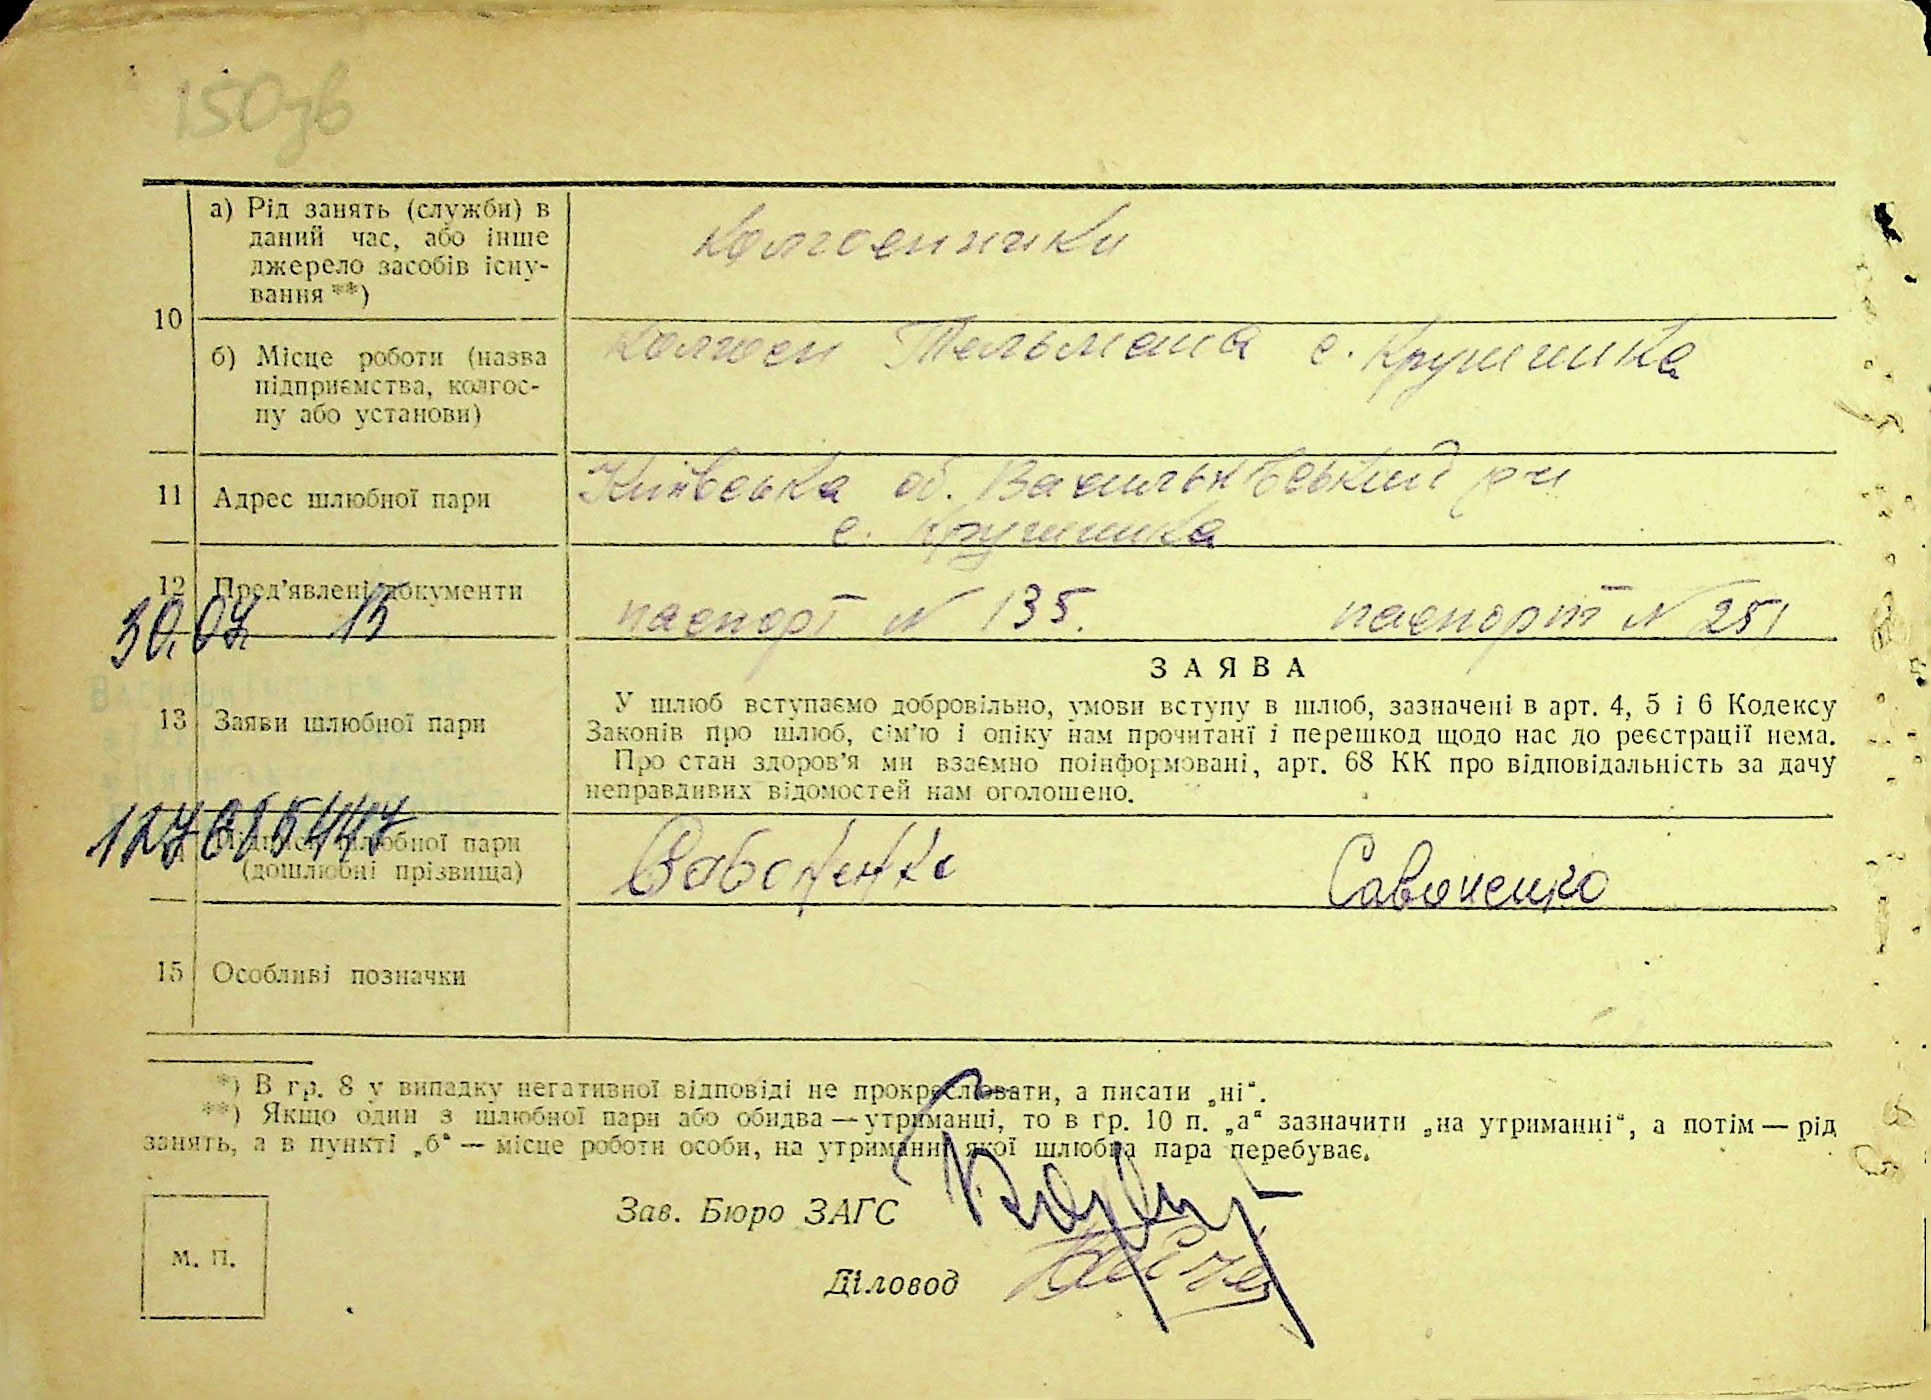 150зв
а) Рід занять (служби) в
даний час, або інше
джерело засобів існу-
вання **)
колгоспники
10
б) Місце роботи (назва
підприємства, колгос-
пу або установи)
колгосп Тельмана с. Крушинка
11 Адрес шлюбної пари
Київська об. Васильківський р-н
с. Крушинка
12 Пред'явлені документи
паспорт N 135. паспорт N 251
30.07. 15
13 Заяви шлюбної пари
ЗАЯВА
У шлюб вступаємо добровільно, умови вступу в шлюб, зазначені в арт. 4, 5 і 6 Кодексу
Законів про шлюб, сім'ю і опіку нам прочитані і перешкод щодо нас до реєстрації нема.
Про стан здоров'я ми взаємно поінформовані, арт. 68 КК про відповідальність за дачу
неправдивих відомостей нам оголошено.
шлюбної пари
(дошлюбні прізвища)
Савоненко
15 Особливі позначки
*) В гр. 8 у випадку негативної відповіді не прокреслювати, а писати „ні“.
**) Якщо один з шлюбної пари або обидва — утриманці, то в гр. 10 п. „а“ зазначити „на утриманні“, а потім — рід
занять, а в пункті „б“ — місце роботи особи, на утриманні якої шлюбна пара перебуває.
Зав. Бюро ЗАГС
М. П.
Діловод